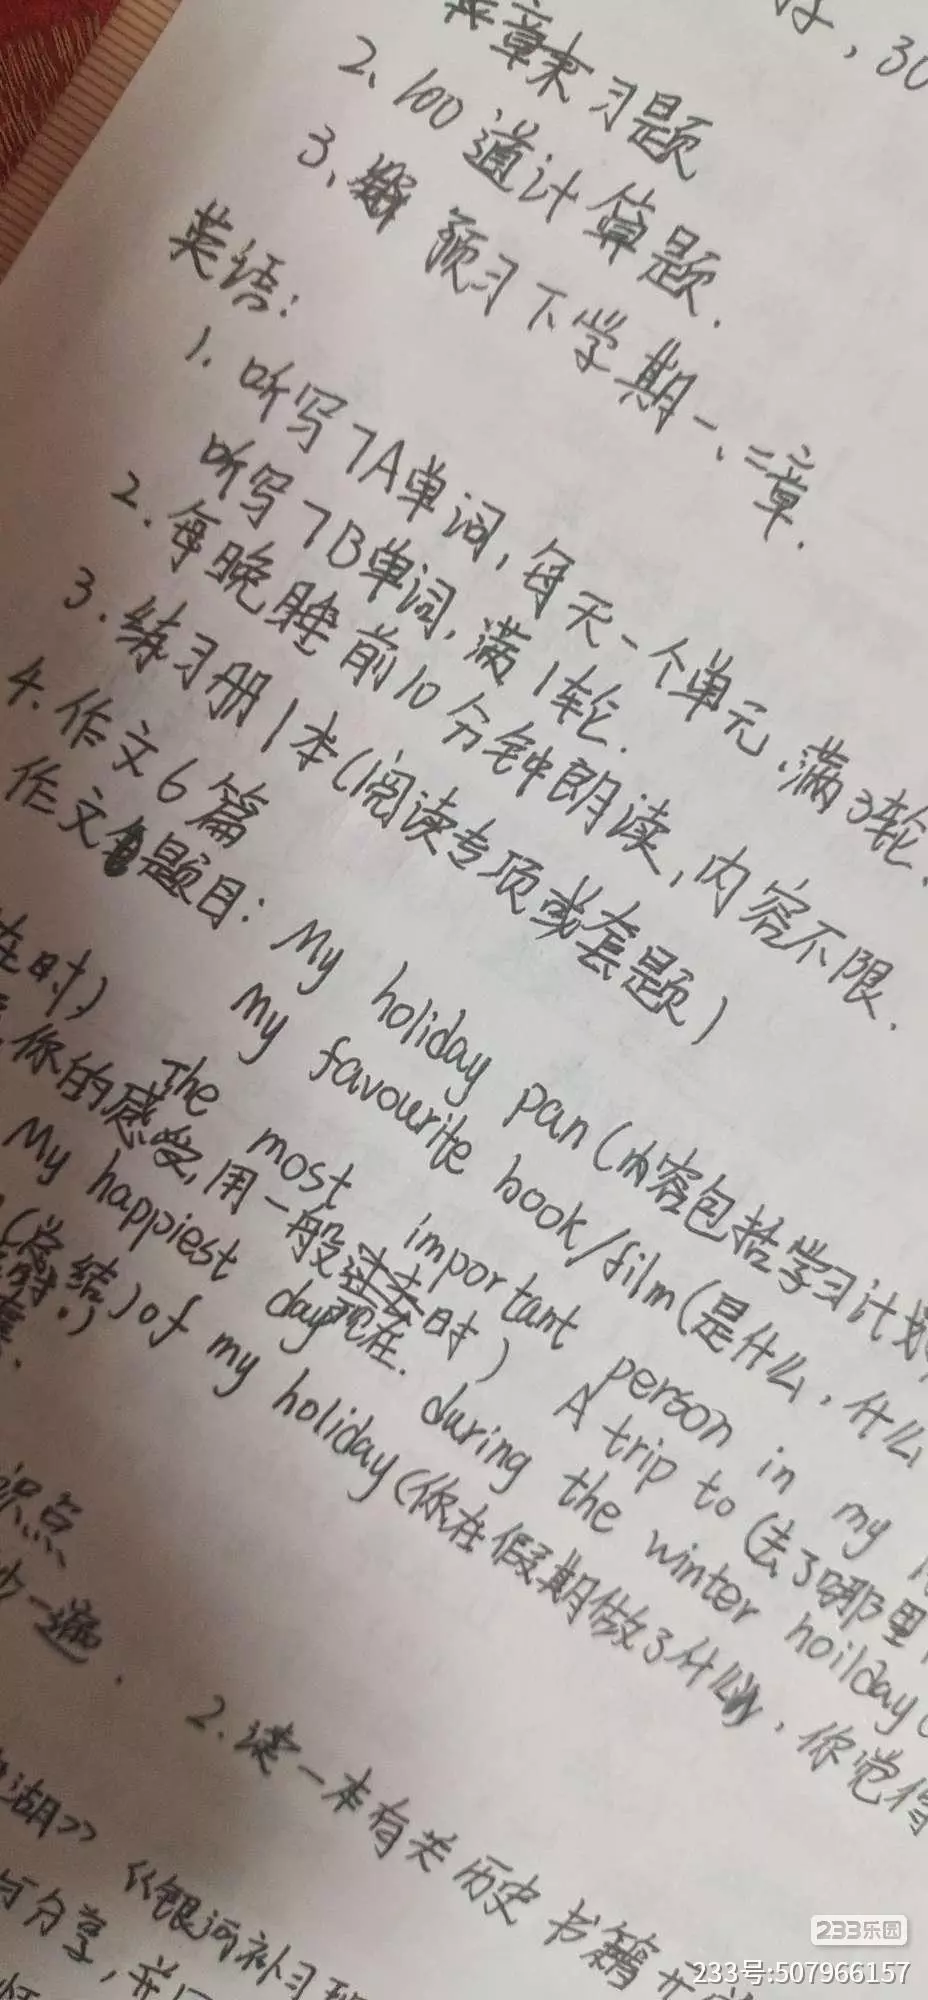 好，30
章末习题
2、100道计算题.
3、预习下学期一、二章.
英语：
1. 听写7A单词，每天一个单元，满3轮.
听写7B单词，满1轮.
2. 每晚睡前10分钟朗读，内容不限.
3. 练习册1本（阅读专项或套题）
4. 作文6篇
作文题目：My holiday pan（内容包括学习计划
在时） My favourite book/film（是什么，什么
The most important person in my
你的感受，用一般过去时） A trip to（去了哪里
My happiest day during the winter hoilday
现在.
结）of my holiday（你在假期做了什么，你觉得
识点
一遍. 2. 读一本有关历史书籍
湖》《银河补习班
分享，并
233乐园
233号:507966157